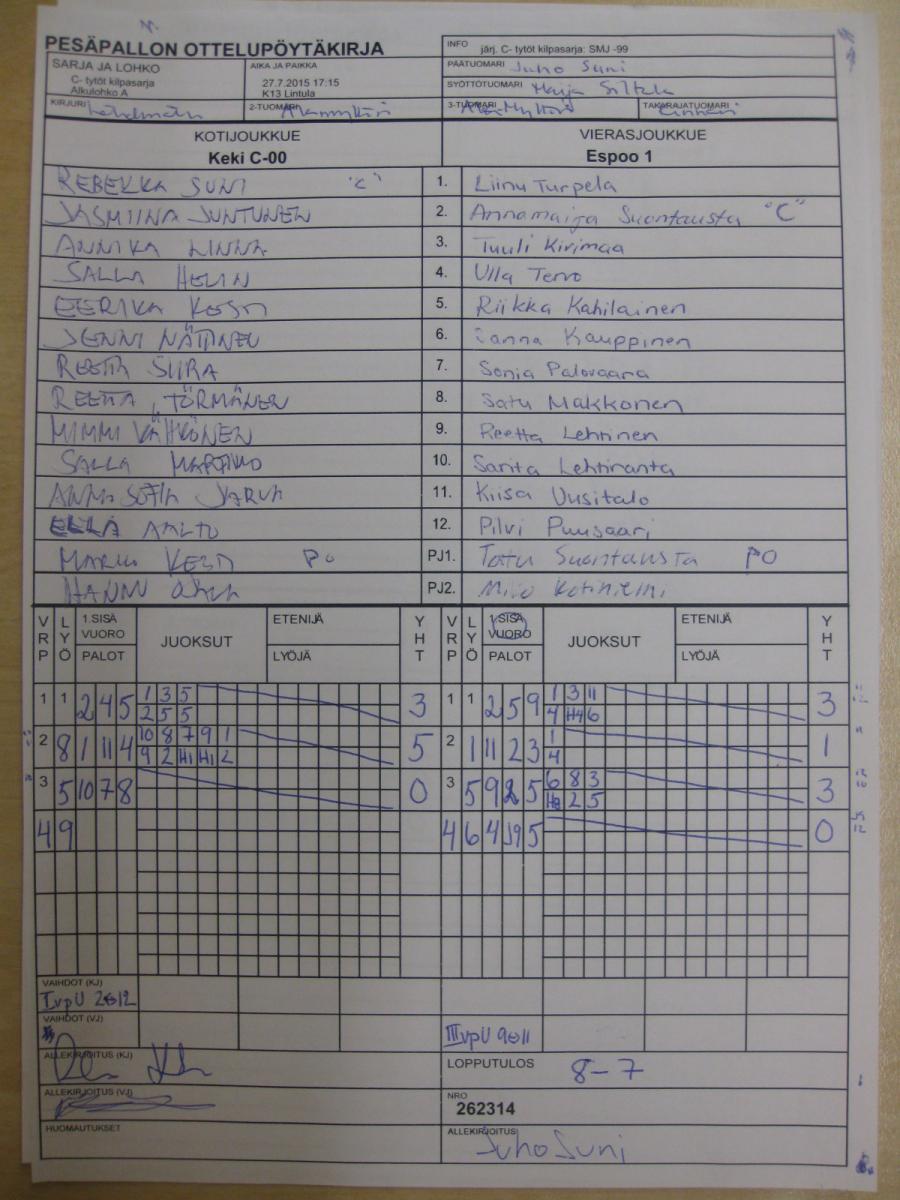 PESÄPALLON OTTELUPÖYTÄKIRJA
INFO järj. C- tytöt kilpasarja: SMJ -99
SARJA JA LOHKO
C- tytöt kilpasarja
Alkulohko A
AIKA JA PAIKKA
27.7.2015 17:15
K13 Lintula
PÄÄTUOMARI Juho Suni
SYÖTTÖTUOMARI Marja Siltala
KIRJURI
2-TUOMARI Alamylläri
3-TUOMARI Alamylläri
TAKARAJATUOMARI
KOTIJOUKKUE VIERASJOUKKUE
Keki C-00 Espoo 1
REBEKKA SUNI "C" 1. Liinu Turpela
JASMIINA JUNTUNEN 2. Annamaija Suontausta "C"
ANNIKA LINNA 3. Tuuli Kirimaa
SALLA HELIN 4. Ulla Tervo
EERIKA KESTI 5. Riikka Kahilainen
JENNI NÄTINEN 6. Sanna Kauppinen
REETTA SIIRA 7. Sonja Palovaara
REETTA TÖRMÄNEN 8. Satu Makkonen
MIMMI VÄHKÖNEN 9. Reetta Lehtinen
SALLA 10. Sarita Lehtiranta
ANNA SOFIA 11. Kiisa Uusitalo
ELLA AALTO 12. Pilvi Puusaari
MARKU KESTI PO PJ1. Totu Suontausta PO
HANNU PJ2. Milo Kotiniemi
VRP LYÖ 1.SISÄ VUORO PALOT JUOKSUT ETENIJÄ LYÖJÄ YHT VRP LYÖ 1.SISÄ VUORO PALOT JUOKSUT ETENIJÄ LYÖJÄ YHT
1 1 2 4 5 1 3 5 3 1 1 2 5 9 1 3 11 3
2 5 5 4 H4 6
2 8 1 11 4 10 8 7 9 1 5 2 1 11 2 3 1 1
9 2 H1 H1 2 4
3 5 10 7 8 0 3 5 9 2 5 6 8 3 3
H8 2 5
4 9 4 6 4 5 0
VAIHDOT (KJ)
IvpU 2 12
VAIHDOT (VJ)
IIIvpU 9 11
ALLEKIRJOITUS (KJ)
LOPPUTULOS 8-7
ALLEKIRJOITUS (VJ)
NRO
262314
HUOMAUTUKSET
ALLEKIRJOITUS Juho Suni